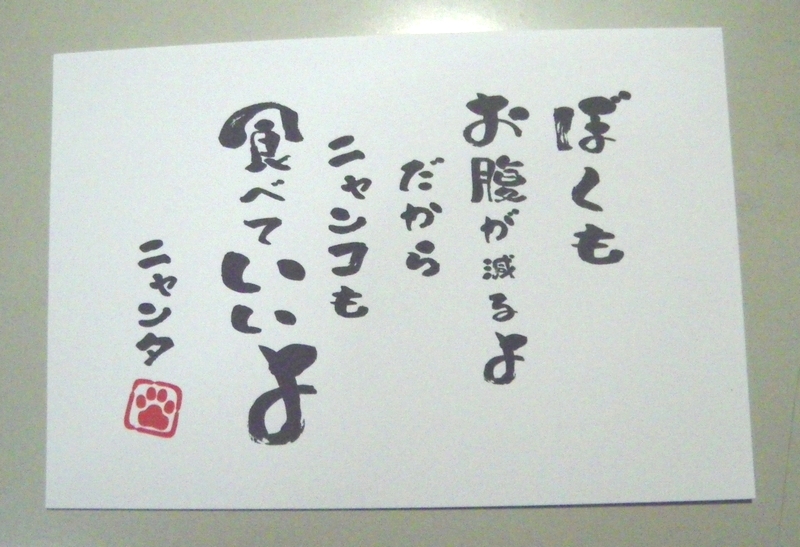 ぼくも
お腹が減るよ
だから
ニャンコも
食べていいよ
ニャンタ